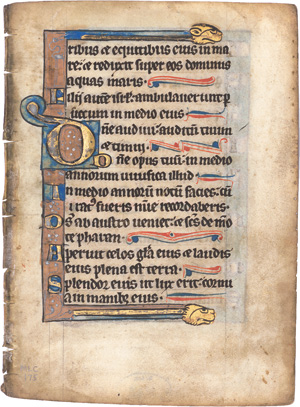 tribus et equitibus eius in ma
re: et reduxit super eos dominus
aquas maris.
Filij autem isrl ambulaverunt p
siccum in medio eius
Dñe audiui auditum tuum
et timui
Dñe opus tuum in medio
annorum uiuifica illud
In medio annorum notum facies: cum
iratus fueris misericordie recordaberis.
Ds ab austro ueniet et scs de mo
te pharan
Operuit celos gla eius et laudis
eius plena est terra.
Splendor eius ut lux erit: cornu
a in manibus eius.